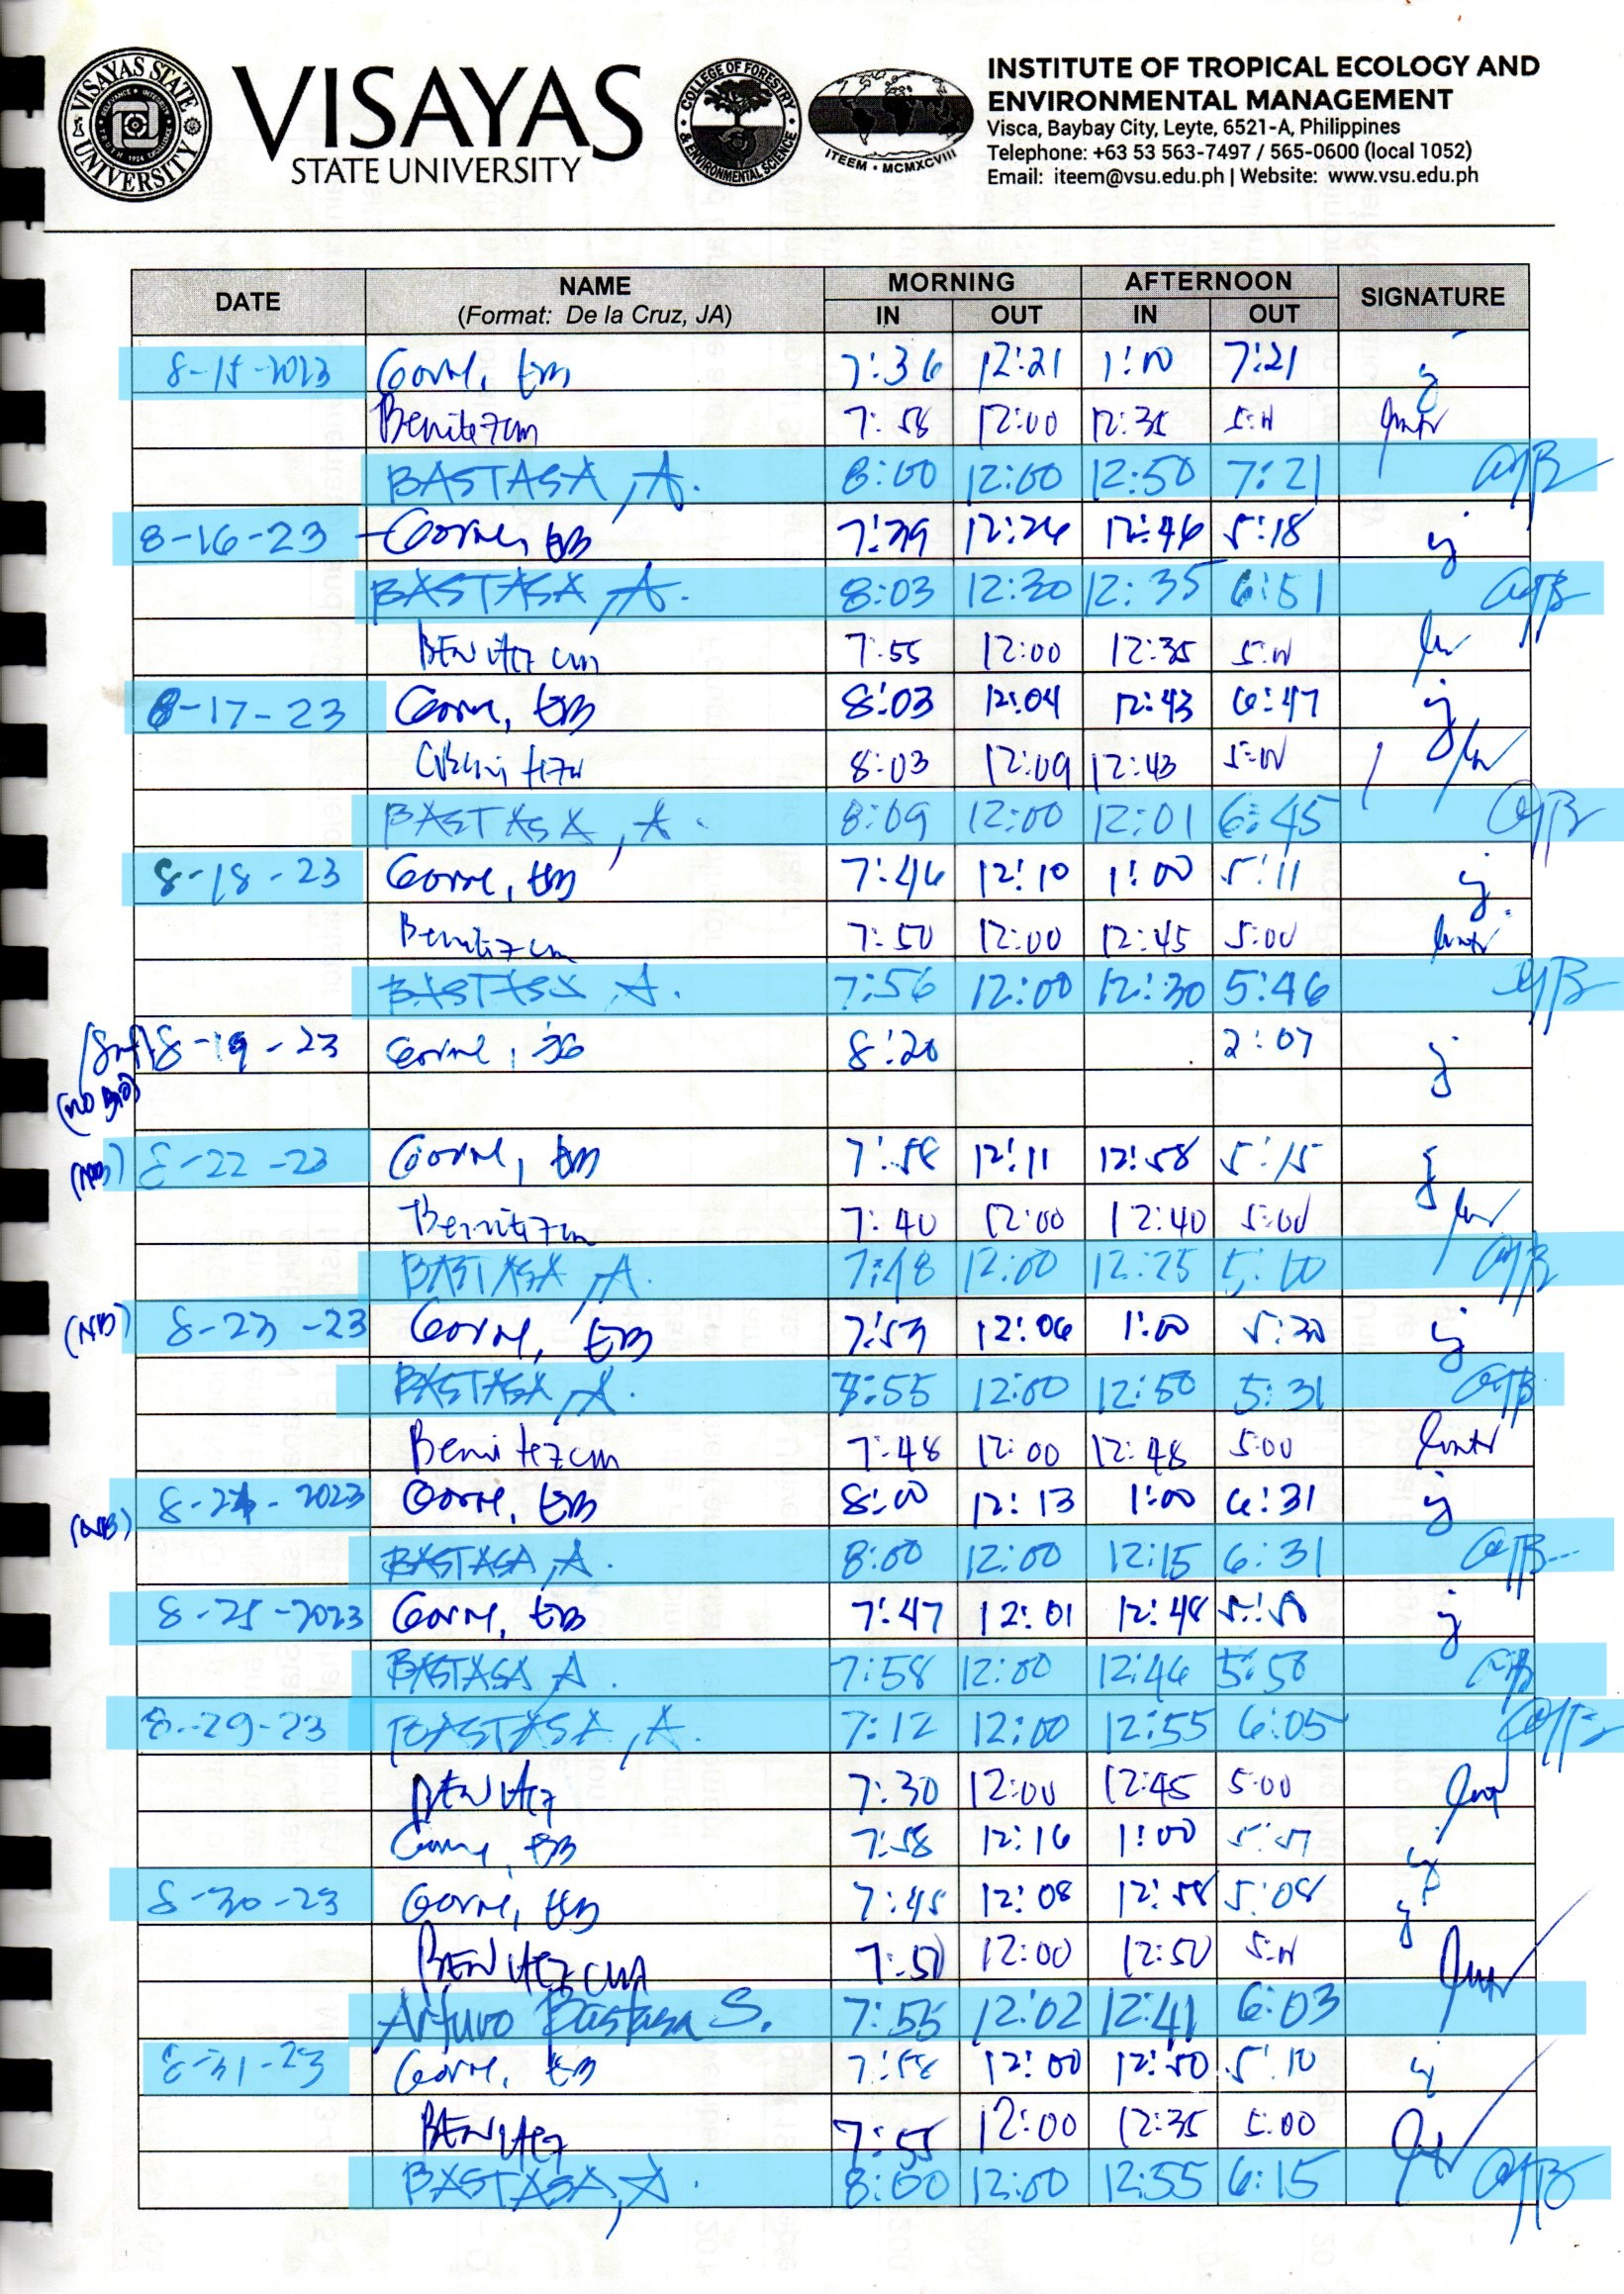 VISAYAS STATE UNIVERSITY
VISAYAS
STATE UNIVERSITY
COLLEGE OF FORESTRY & ENVIRONMENTAL SCIENCE
ITEEM • MCMXCVIII
INSTITUTE OF TROPICAL ECOLOGY AND
ENVIRONMENTAL MANAGEMENT
Visca, Baybay City, Leyte, 6521-A, Philippines
Telephone: +63 53 563-7497 / 565-0600 (local 1052)
Email: iteem@vsu.edu.ph | Website: www.vsu.edu.ph
DATE NAME MORNING AFTERNOON SIGNATURE
(Format: De la Cruz, JA) IN OUT IN OUT
8-15-2023 Gorne, EB 7:36 12:21 1:00 7:21
Benitez cm 7:58 12:00 12:35 5:00
BASTASA, A. 8:00 12:00 12:50 7:21
8-16-23 Gorne, EB 7:39 12:26 12:46 5:18
BASTASA, A. 8:03 12:30 12:35 6:51
BENitez cm 7:55 12:00 12:35 5:00
8-17-23 Gorne, EB 8:03 12:04 12:43 6:47
8:03 12:09 12:43 5:00
BASTASA, A. 8:09 12:00 12:01 6:45
8-18-23 Gorne, EB 7:46 12:10 1:00 5:11
Benitez cm 7:50 12:00 12:45 5:00
BASTASA, A. 7:56 12:00 12:30 5:46
(Sat) 8-19-23 Gorne, 8:20 2:07
(NO BIO)
(NB) 8-22-23 Gorne, EB 7:58 12:11 12:58 5:15
Benitez cm 7:40 12:00 12:40 5:00
BASTASA, A. 7:48 12:00 12:25 5:10
(NB) 8-23-23 Gorne, EB 7:53 12:06 1:00 5:30
BASTASA, A. 7:55 12:00 12:50 5:31
Benitez cm 7:48 12:00 12:48 5:00
(NB) 8-24-2023 Gorne, EB 8:00 12:13 1:00 6:31
BASTASA, A. 8:00 12:00 12:15 6:31
8-25-2023 Gorne, EB 7:47 12:01 12:48 5:50
BASTASA, A. 7:58 12:00 12:46 5:50
8-29-23 BASTASA, A. 7:12 12:00 12:55 6:05
BENitez 7:30 12:00 12:45 5:00
Gorne, EB 7:58 12:16 1:00
8-30-23 Gorne, EB 7:45 12:08 12:58 5:08
BENitez cm 7:50 12:00 12:50 5:00
Arturo Bastasa S. 7:55 12:02 12:41 6:03
8-31-23 Gorne, EB 7:58 12:00 12:50 5:10
BENitez 7:55 12:00 12:35 5:00
BASTASA, A. 8:00 12:00 12:55 6:15